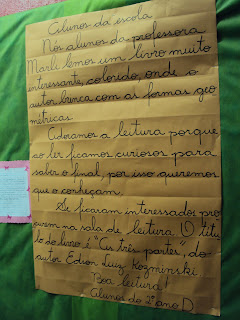 Alunos da escola
Nós alunos da professora
Marli lemos um livro muito
interessante, colorido, onde o
autor brinca com as formas geo
métricas.
Adoramos a leitura porque
ao ler ficamos curiosos para
saber o final, por isso queremos
que o conheçam.
Se ficaram interessados pro
curem na sala de leitura. O títu
lo do livro é "As três partes", do
autor Edson Luiz Kozminski.
Boa leitura!
Alunos do 2º ano D